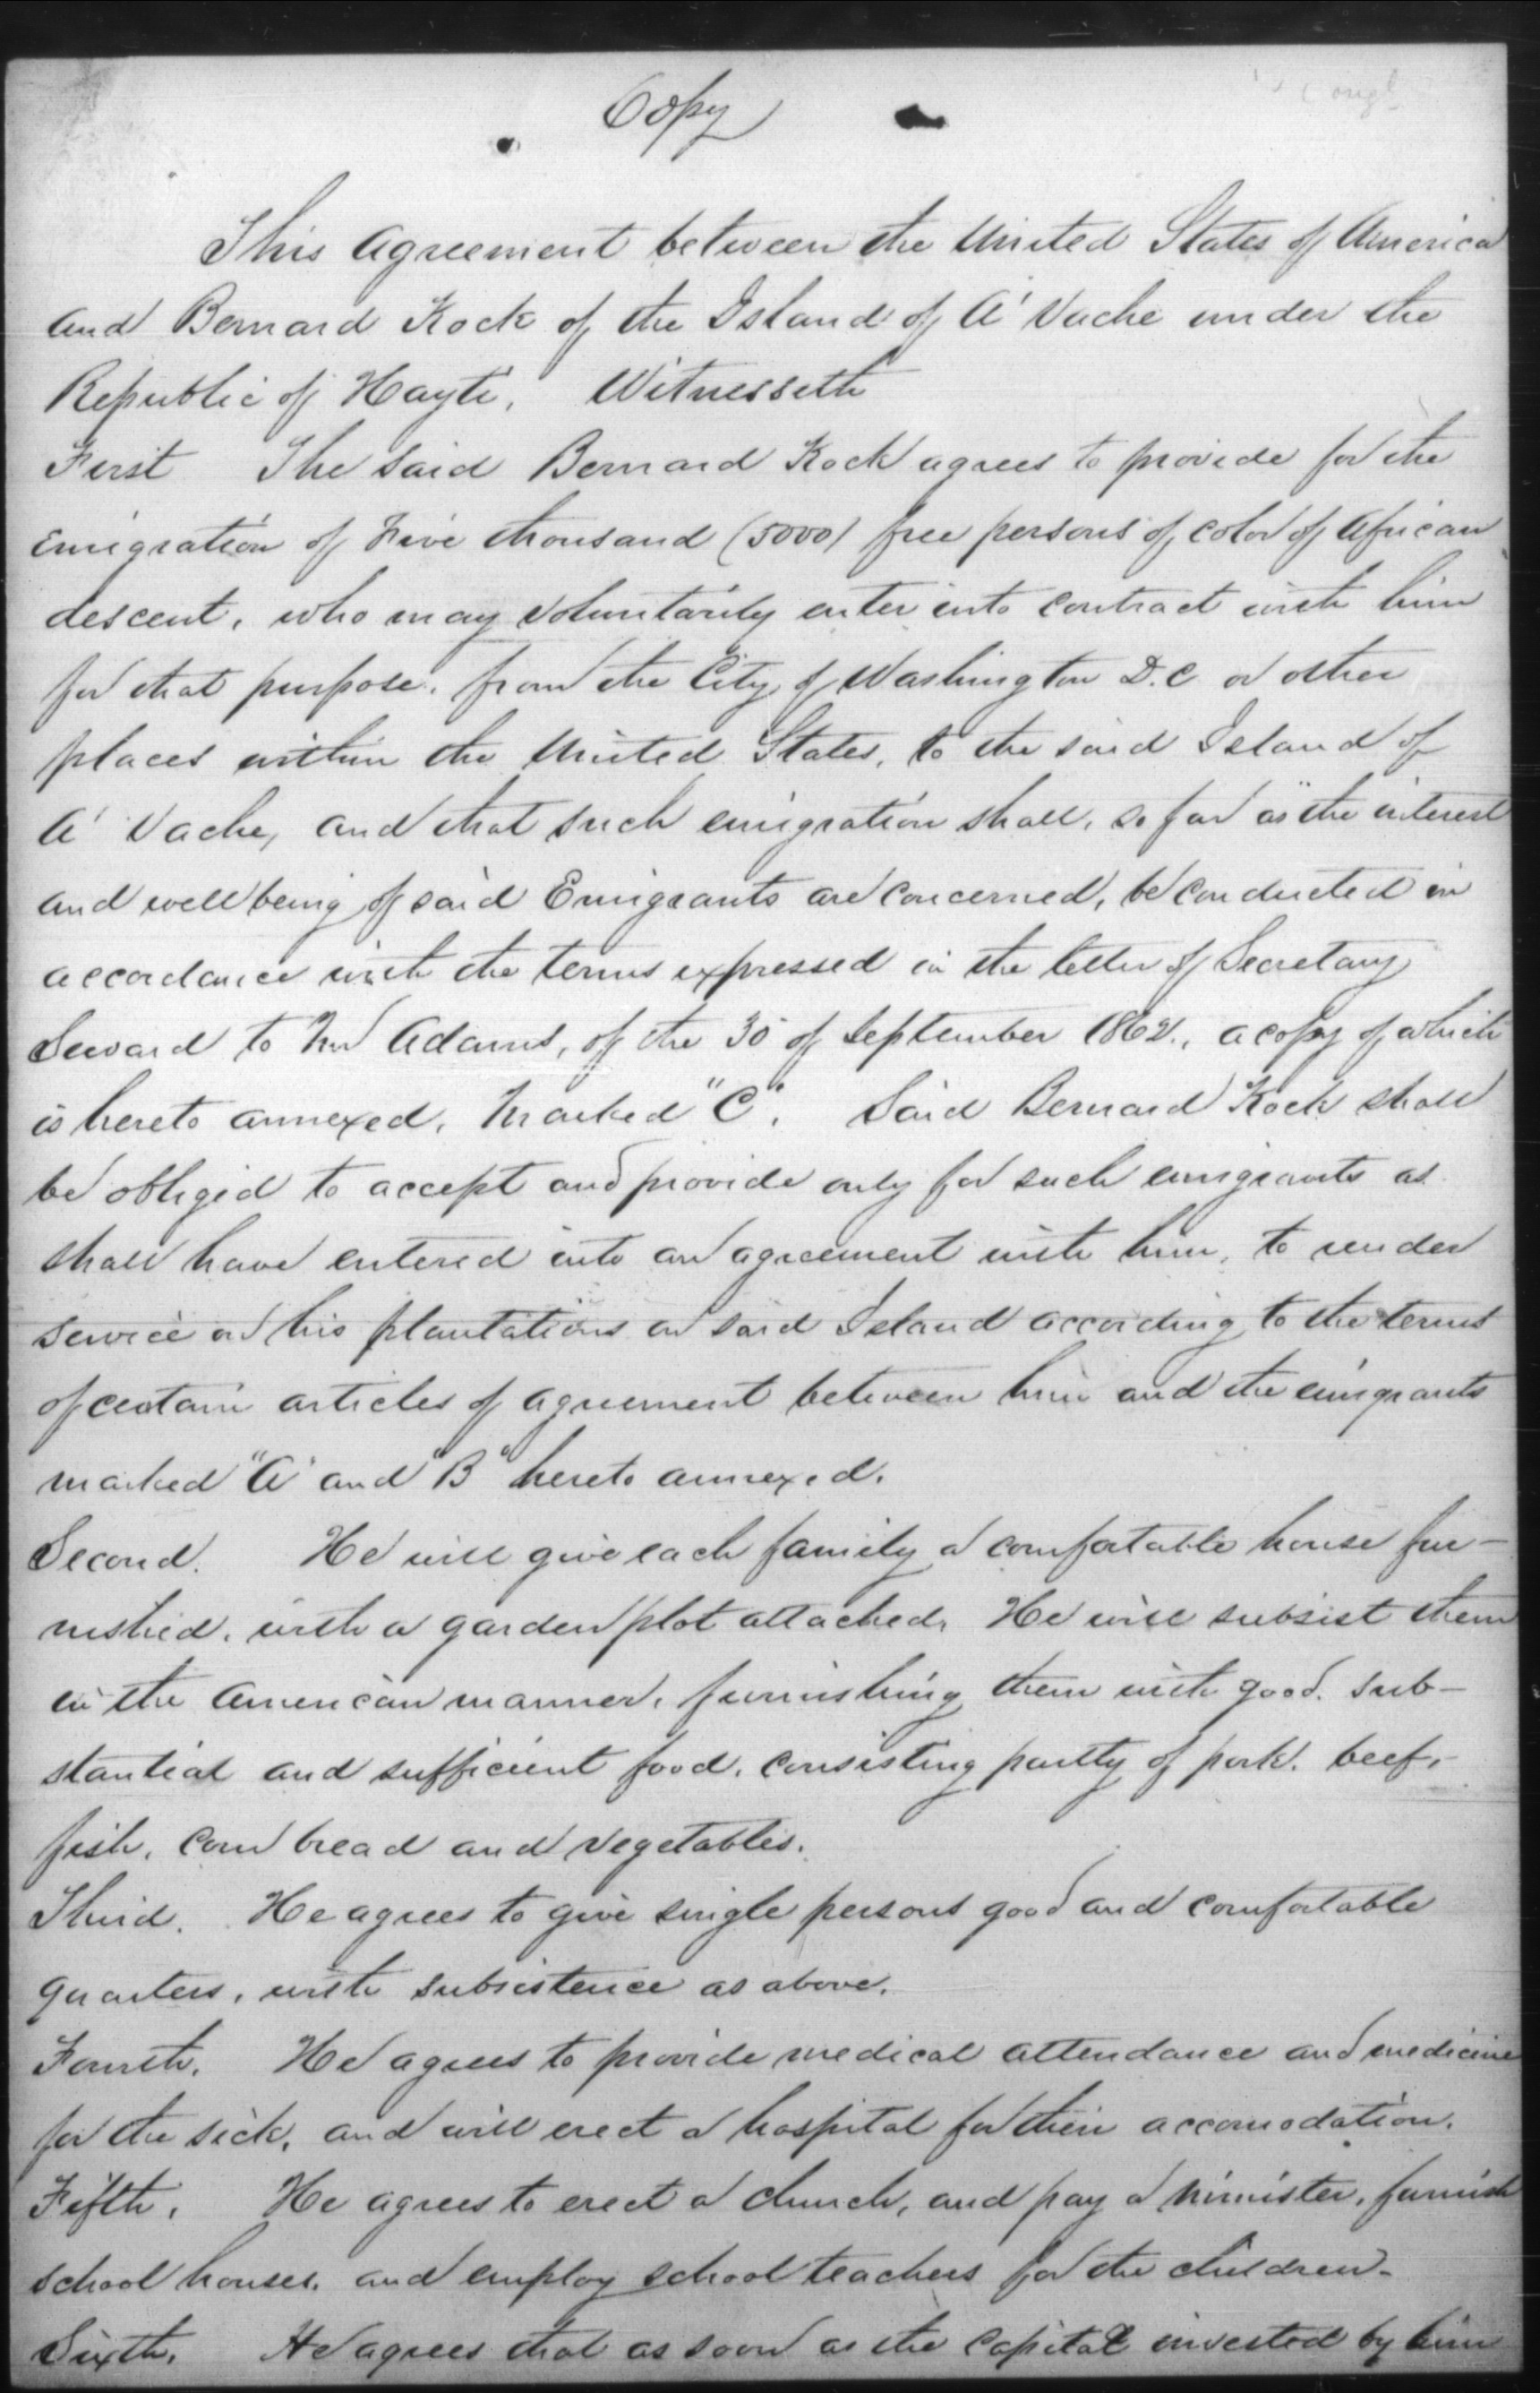 Copy
This Agreement between the United States of America
and Bernard Kock of the Island of A' Vache under the
Republic of Hayti, Witnesseth
First The said Bernard Kock agrees to provide for the
emigration of Five thousand (5000) free persons of color of African
descent, who may voluntarily enter into contract with him
for that purpose, from the City of Washington D.C or other
places within the United States, to the said Island of
A' Vache, and that such emigration shall, so far as the interest
and well being of said Emigrants are concerned, be conducted in
accordance with the terms expressed in the letter of Secretary
Seward to Mr Adams, of the 30 of September 1862., a copy of which
is hereto annexed, Marked "C". Said Bernard Kock shall
be obliged to accept and provide only for such emigrants as
shall have entered into an agreement with him, to render
service on his plantations on said Island according to the terms
of certain articles of agreement between him and the emigrants
marked "A" and "B" hereto annexed.
Second. He will give each family a comfortable house fur-
nished, with a garden plot attached, He will subsist them
in the American manner, furnishing them with good, sub-
stantial and sufficient food, consisting partly of pork, beef,
fish, corn bread and vegetables.
Third. He agrees to give single persons good and comfortable
quarters, with subsistence as above.
Fourth. He agrees to provide medical attendance and medicine
for the sick, and will erect a hospital for their accomodation.
Fifth. He agrees to erect a church, and pay a minister, furnish
school houses, and employ school teachers for the children.
Sixth. He agrees that as soon as the Capital invested by him